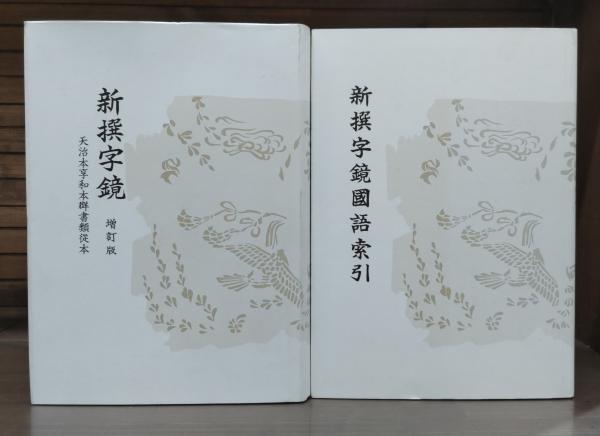 新撰字鏡 增訂版
天治本享和本群書類従本
新撰字鏡國語索引